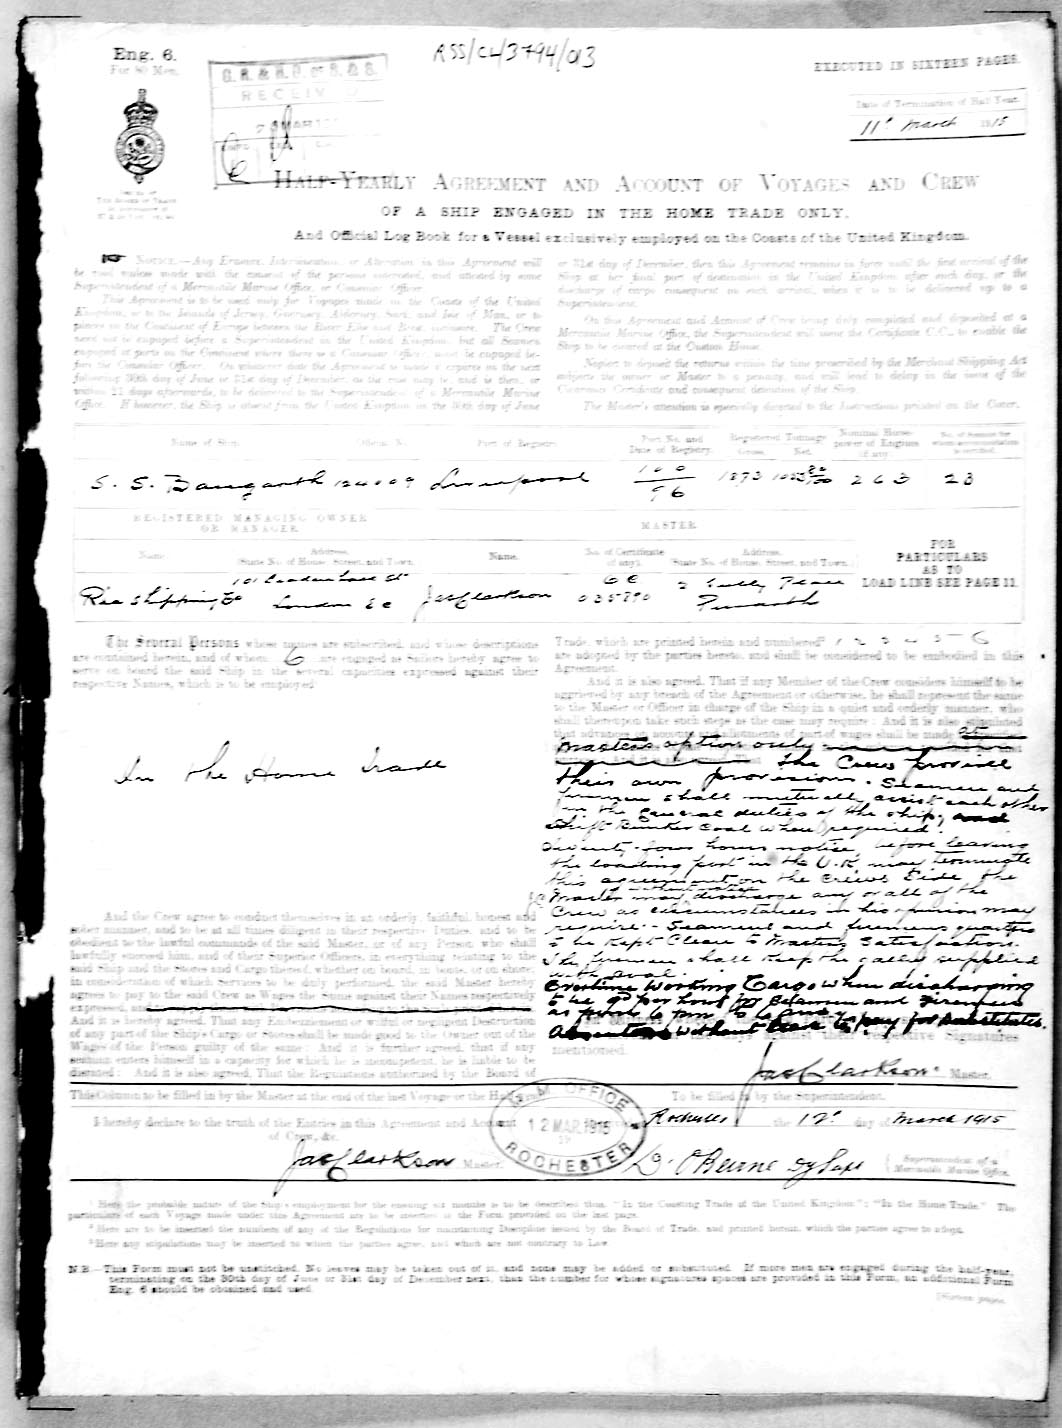 Eng. 6.
For 80 Men.
RSS/CL/3794/013
EXECUTED IN SIXTEEN PAGES.
RECEIVED
Date of Termination of Half Year.
11th March 1915
HALF-YEARLY AGREEMENT AND ACCOUNT OF VOYAGES AND CREW
OF A SHIP ENGAGED IN THE HOME TRADE ONLY,
And Official Log Book for a Vessel exclusively employed on the Coasts of the United Kingdom.
NOTICE.—Any Erasure, Interlineation, or Alteration in this Agreement will
be void unless made with the consent of the persons interested, and attested by some
Superintendent of a Mercantile Marine Office, or Consular Officer.
This Agreement is to be used only for Voyages made on the Coasts of the United
Kingdom, or to the Islands of Jersey, Guernsey, Alderney, Sark, and Isle of Man, or to
places on the Continent of Europe between the River Elbe and Brest, inclusive. The Crew
need not be engaged before a Superintendent in the United Kingdom, but all Seamen
engaged at ports on the Continent where there is a Consular Officer, must be engaged be-
fore the Consular Officer. On whatever date the Agreement is made it expires on the next
following 30th day of June or 31st day of December, as the case may be, and is then, or
within 21 days afterwards, to be delivered to the Superintendent of a Mercantile Marine
Office. If however, the Ship is absent from the United Kingdom on the 30th day of June
or 31st day of December, then this Agreement remains in force until the first arrival of the
Ship at her final port of destination in the United Kingdom after such day, or the
discharge of cargo consequent on such arrival, when it is to be delivered up to a
Superintendent.
On this Agreement and Account of Crew being duly completed and deposited at a
Mercantile Marine Office, the Superintendent will issue the Certificate C.C., to enable the
Ship to be cleared at the Custom House.
Neglect to deposit the returns within the time prescribed by the Merchant Shipping Act
subjects the owner or Master to a penalty, and will lead to delay in the issue of the
Customs Certificate and consequent detention of the Ship.
The Master's attention is specially directed to the Instructions printed on the Cover.
Name of Ship. Official No. Port of Registry. Port No. and Date of Registry. Registered Tonnage Gross. Net. Nominal Horse-power of Engines (if any).
S. S. Bangarth 124009 Liverpool 100/96 1873 263 28
REGISTERED MANAGING OWNER OR MANAGER MASTER
Name. Address. State No. of House, Street, and Town. Name. No. of Certificate (if any). Address. State No. of House, Street, and Town.
FOR PARTICULARS AS TO LOAD LINE SEE PAGE 11.
Rea Shipping Co 101 Leadenhall St London E C Jas Clarkson 035890 2 Place Penarth
The Several Persons whose names are subscribed, and whose descriptions
are contained herein, and of whom 6 are engaged as Sailors hereby agree to
serve on board the said Ship in the several capacities expressed against their
respective Names, which is to be employed
In the Home Trade
And the Crew agree to conduct themselves in an orderly, faithful, honest and
sober manner, and to be at all times diligent in their respective Duties, and to be
obedient to the lawful commands of the said Master, or of any Person who shall
lawfully succeed him, and of their Superior Officers, in everything relating to the
said Ship and the Stores and Cargo thereof, whether on board, in boats, or on shore:
in consideration of which Services to be duly performed, the said Master hereby
agrees to pay to the said Crew as Wages the Sums against their Names respectively
expressed,
And it is hereby agreed, That any Embezzlement or wilful or negligent Destruction
of any part of the Ship's Cargo or Stores shall be made good to the Owner out of the
Wages of the Person guilty of the same: And it is further agreed, that if any
seaman enters himself in a capacity for which he is incompetent, he is liable to be
disrated: And it is also agreed, That the Regulations authorised by the Board of
Trade, which are printed herein and numbered 1 2 3 4 5 6
are adopted by the parties hereto, and shall be considered to be embodied in this
Agreement.
And it is also agreed, That if any Member of the Crew considers himself to be
aggrieved by any breach of the Agreement or otherwise, he shall represent the same
to the Master or Officer in charge of the Ship in a quiet and orderly manner, who
shall thereupon take such steps as the case may require: And it is also stipulated
that advances on account and allotments of part of wages shall be made at
Masters option only
The Crew provide
their own provisions. Seamen and
firemen shall mutually assist each other
in the general duties of the ship, and
shift Bunker Coal when required.
Twenty-four hours notice, before leaving
the loading port in the U.K may terminate
this agreement on the Crews side, the
Master may without notice discharge any or all of the
Crew as circumstances in his opinion may
require. Seamens and firemens quarters
to be kept Clean to Masters Satisfaction.
The firemen shall keep the galley supplied
with coal.
Overtime Working Cargo when discharging
to be 9d per hour for Seamen and Firemen
without to pay for Substitutes.
mentioned.
Jas Clarkson Master.
This Column to be filled in by the Master at the end of the last Voyage or the Half-year.
To be filled in by the Superintendent.
I hereby declare to the truth of the Entries in this Agreement and Account
of Crew, &c.
Jas Clarkson Master.
M.M. OFFICE
12 MAR 1915
ROCHESTER
Rochester the 12th day of March 1915
D. O'Beirne Dy Supt
Superintendent of a Mercantile Marine Office.
Here the probable nature of the Ship's employment for the ensuing six months is to be described thus, "In the Coasting Trade of the United Kingdom"; "In the Home Trade." The
particulars of each Voyage made under this Agreement are to be inserted in the Form provided on the last page.
Here are to be inserted the numbers of any of the Regulations for maintaining Discipline issued by the Board of Trade, and printed herein, which the parties agree to adopt.
Here any stipulations may be inserted to which the parties agree, and which are not contrary to Law.
N.B.—This Form must not be unstitched. No leaves may be taken out of it, and none may be added or substituted. If more men are engaged during the half-year,
terminating on the 30th day of June or 31st day of December next, than the number for whose signatures spaces are provided in this Form, an additional Form
Eng. 6 should be obtained and used.
[Sixteen pages.